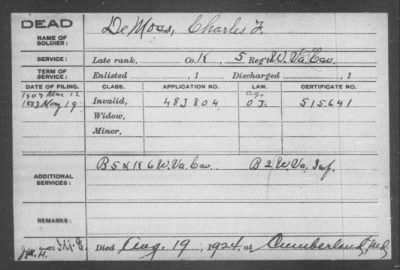 DEAD
NAME OF SOLDIER:
De Moss, Charles F.
SERVICE:
Late rank, Co. K 5 Reg't W. Va. Cav.
TERM OF SERVICE:
Enlisted , 1 Discharged , 1
DATE OF FILING. CLASS. APPLICATION NO. LAW. CERTIFICATE NO.
1907 Mar. 12 Age
1883 May 19 Invalid, 483804 O.J. 515641
Widow,
Minor,
ADDITIONAL SERVICES:
B 5 & K 6 W. Va. Cav. B 2 W. Va. Inf.
REMARKS:
Died Aug. 19, 1924, at Cumberland, Md